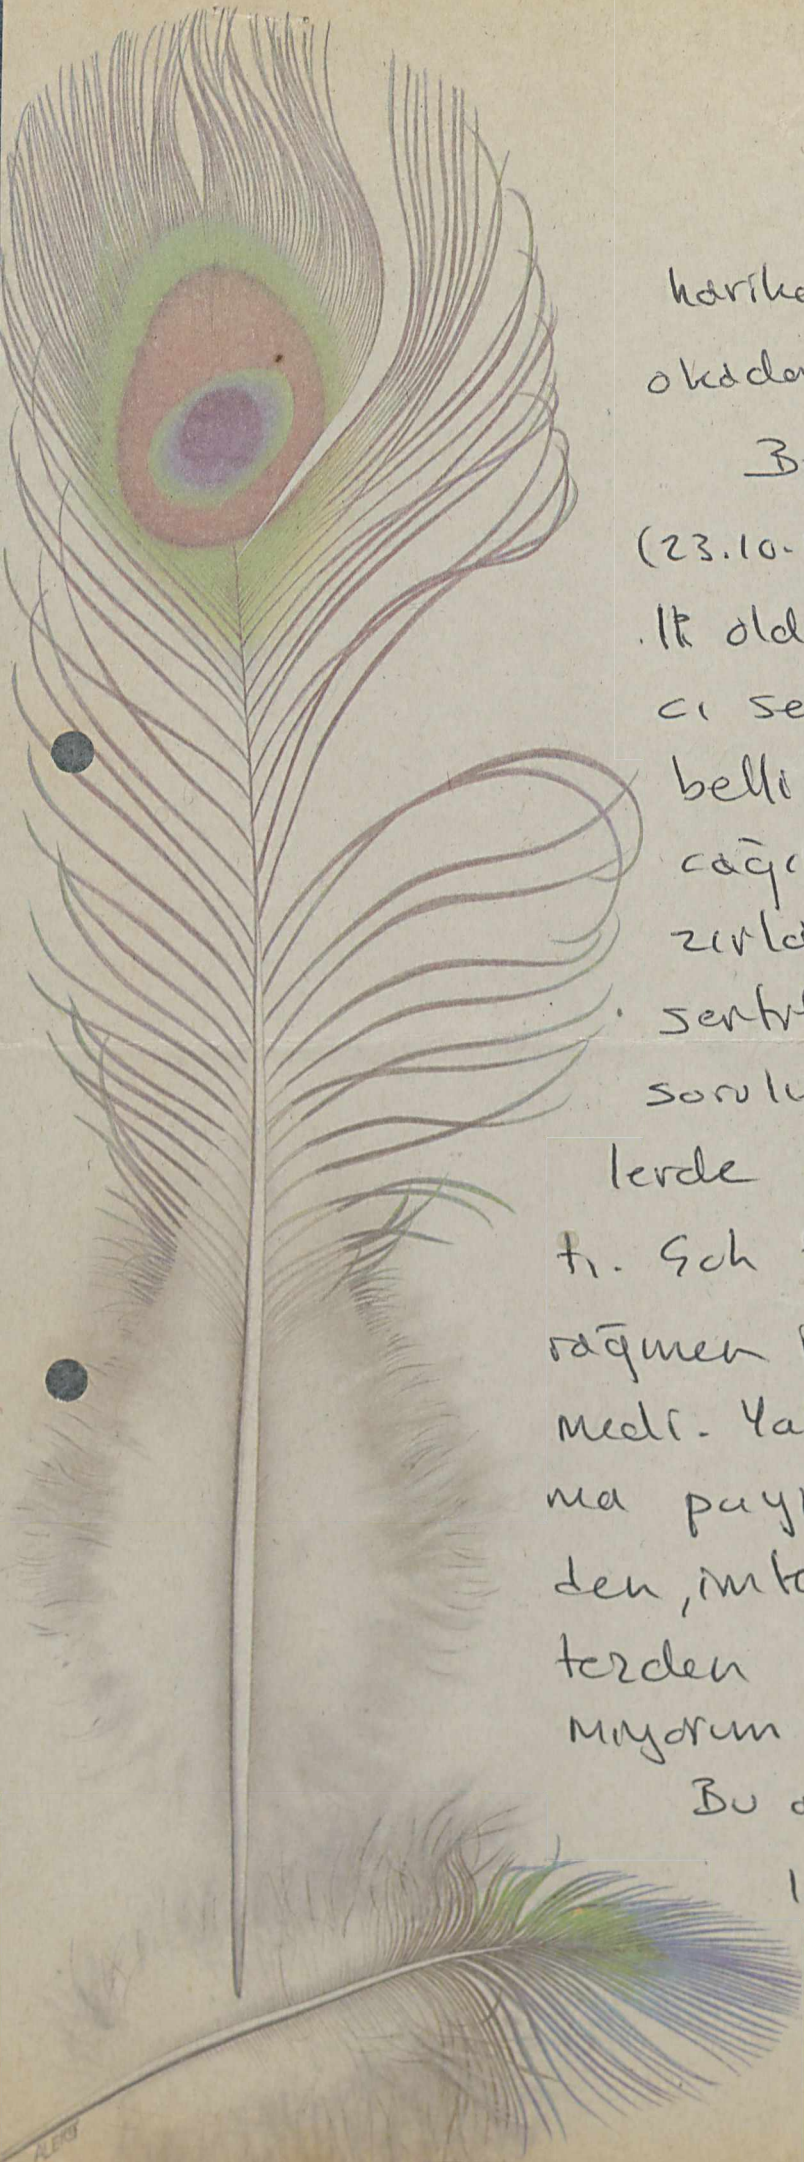 harika
okadar
B
(23.10.
.lk old
cı se
belli
cağı
zırla
sentr
sorulu
lerde
tı. Çok
rağmen
medi. Ya
ma pay
den, imt
terden
mıyorum
Bu